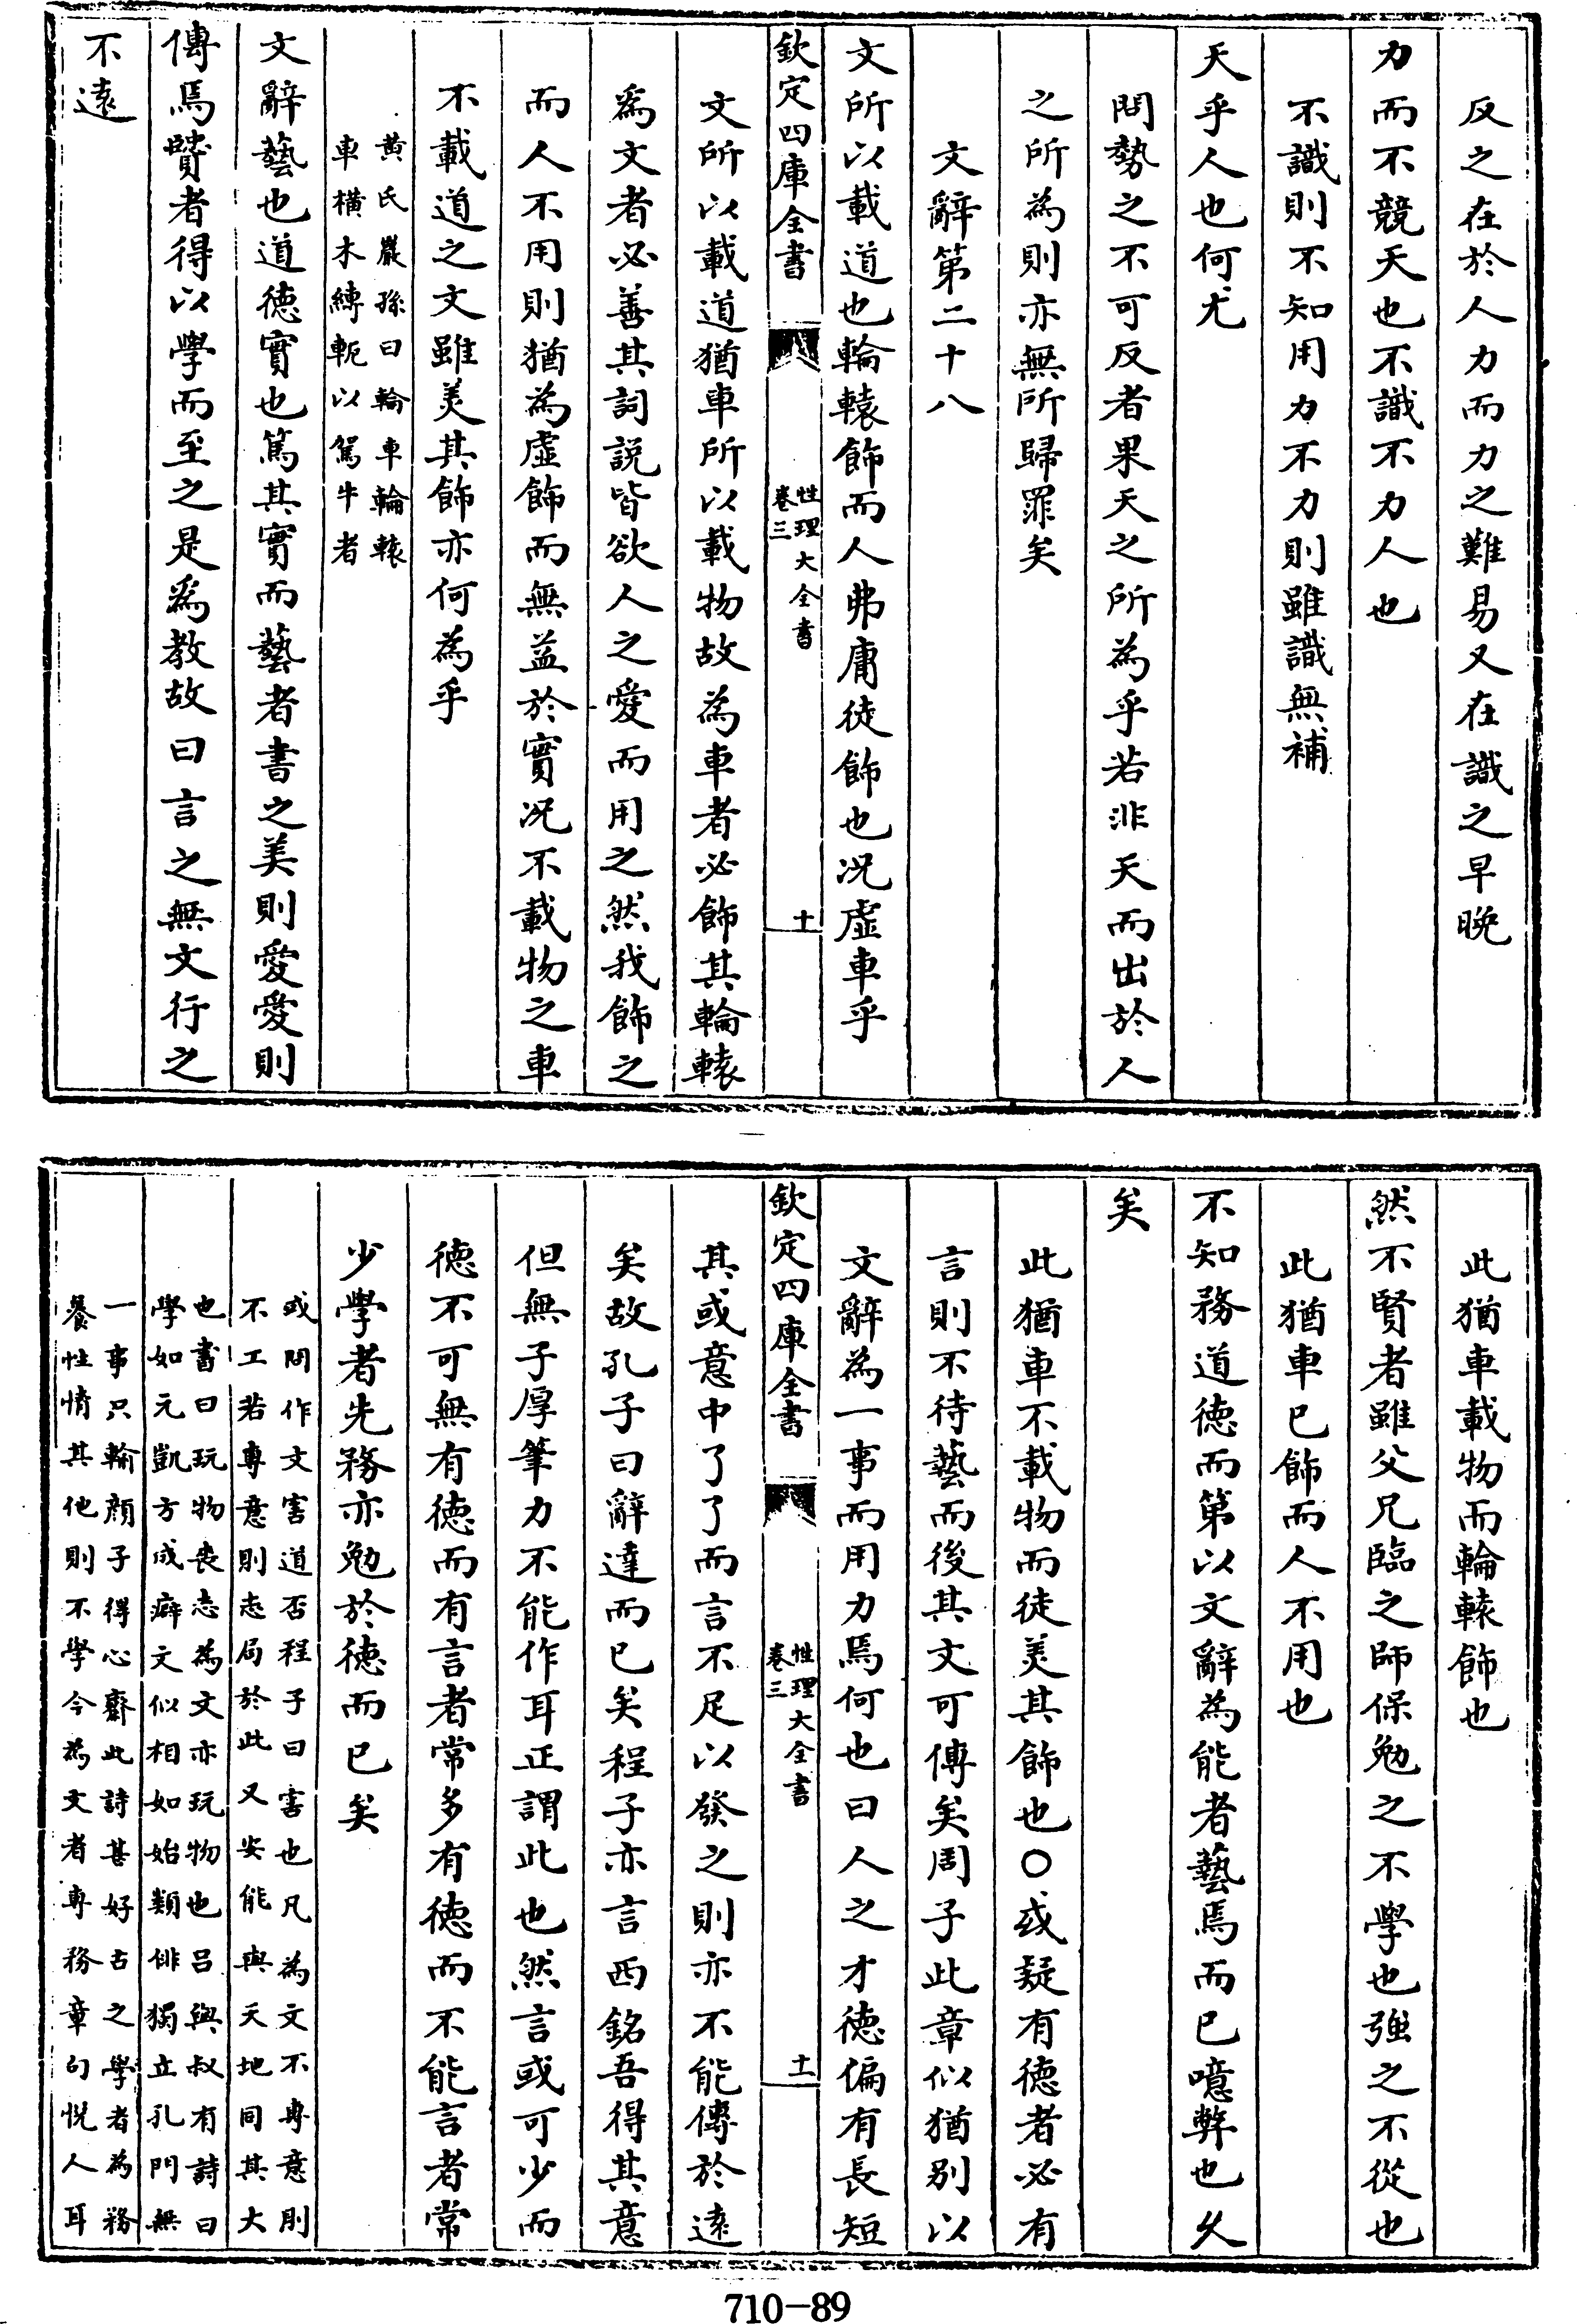 反之在於人力而力之難易又在識之早晚
力而不競天也不識不力人也
不識則不知用力不力則雖識無補
天乎人也何尤
問勢之不可反者果天之所為乎若非天而出於人
之所為則亦無所歸罪矣
文辭第二十八
文所以載道也輪轅飾而人弗庸徒飾也况虛車乎
欽定四庫全書
性理大全書
卷三
十
文所以載道猶車所以載物故為車者必飾其輪轅
為文者必善其詞説皆欲人之愛而用之然我飾之
而人不用則猶為虛飾而無益於實况不載物之車
不載道之文雖美其飾亦何為乎
黃氏巖孫曰輪車輪轅
車橫木縛軛以駕牛者
文辭藝也道徳實也篤其實而藝者書之美則愛愛則
傳焉賢者得以學而至之是為教故曰言之無文行之
不遠
此猶車載物而輪轅飾也
然不賢者雖父兄臨之師保勉之不學也強之不從也
此猶車已飾而人不用也
不知務道徳而第以文辭為能者藝焉而已噫弊也久
矣
此猶車不載物而徒美其飾也○或疑有徳者必有
言則不待藝而後其文可傳矣周子此章似猶别以
文辭為一事而用力焉何也曰人之才徳偏有長短
欽定四庫全書
性理大全書
卷三
十一
其或意中了了而言不足以發之則亦不能傳於遠
矣故孔子曰辭達而已矣程子亦言西銘吾得其意
但無子厚筆力不能作耳正謂此也然言或可少而
徳不可無有徳而有言者常多有徳而不能言者常
少學者先務亦勉於徳而已矣
或問作文害道否程子曰害也凡為文不專意則
不工若專意則志局於此又安能與天地同其大
也書曰玩物喪志為文亦玩物也吕與叔有詩曰
學如元凱方成癖文似相如始類俳獨立孔門無
一事只輸顔子得心齋此詩甚好古之學者為務
養性情其他則不學今為文者專務章句悦人耳
710-89